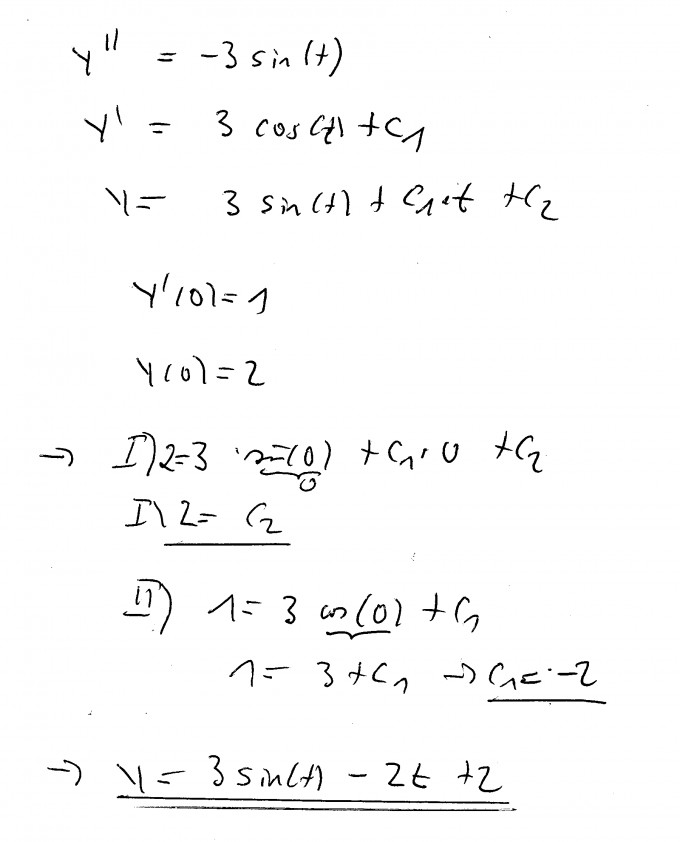 y'' = -3 sin(t)
y' = 3 cos(t) + C1
y = 3 sin(t) + C1·t + C2
y'(0) = 1
y(0) = 2
→ I) 2 = 3 · sin(0) + C1 · 0 + C2
0
I) 2 = C2
II) 1 = 3 cos(0) + C1
1 = 3 + C1 → C1 = -2
→ y = 3 sin(t) - 2t + 2